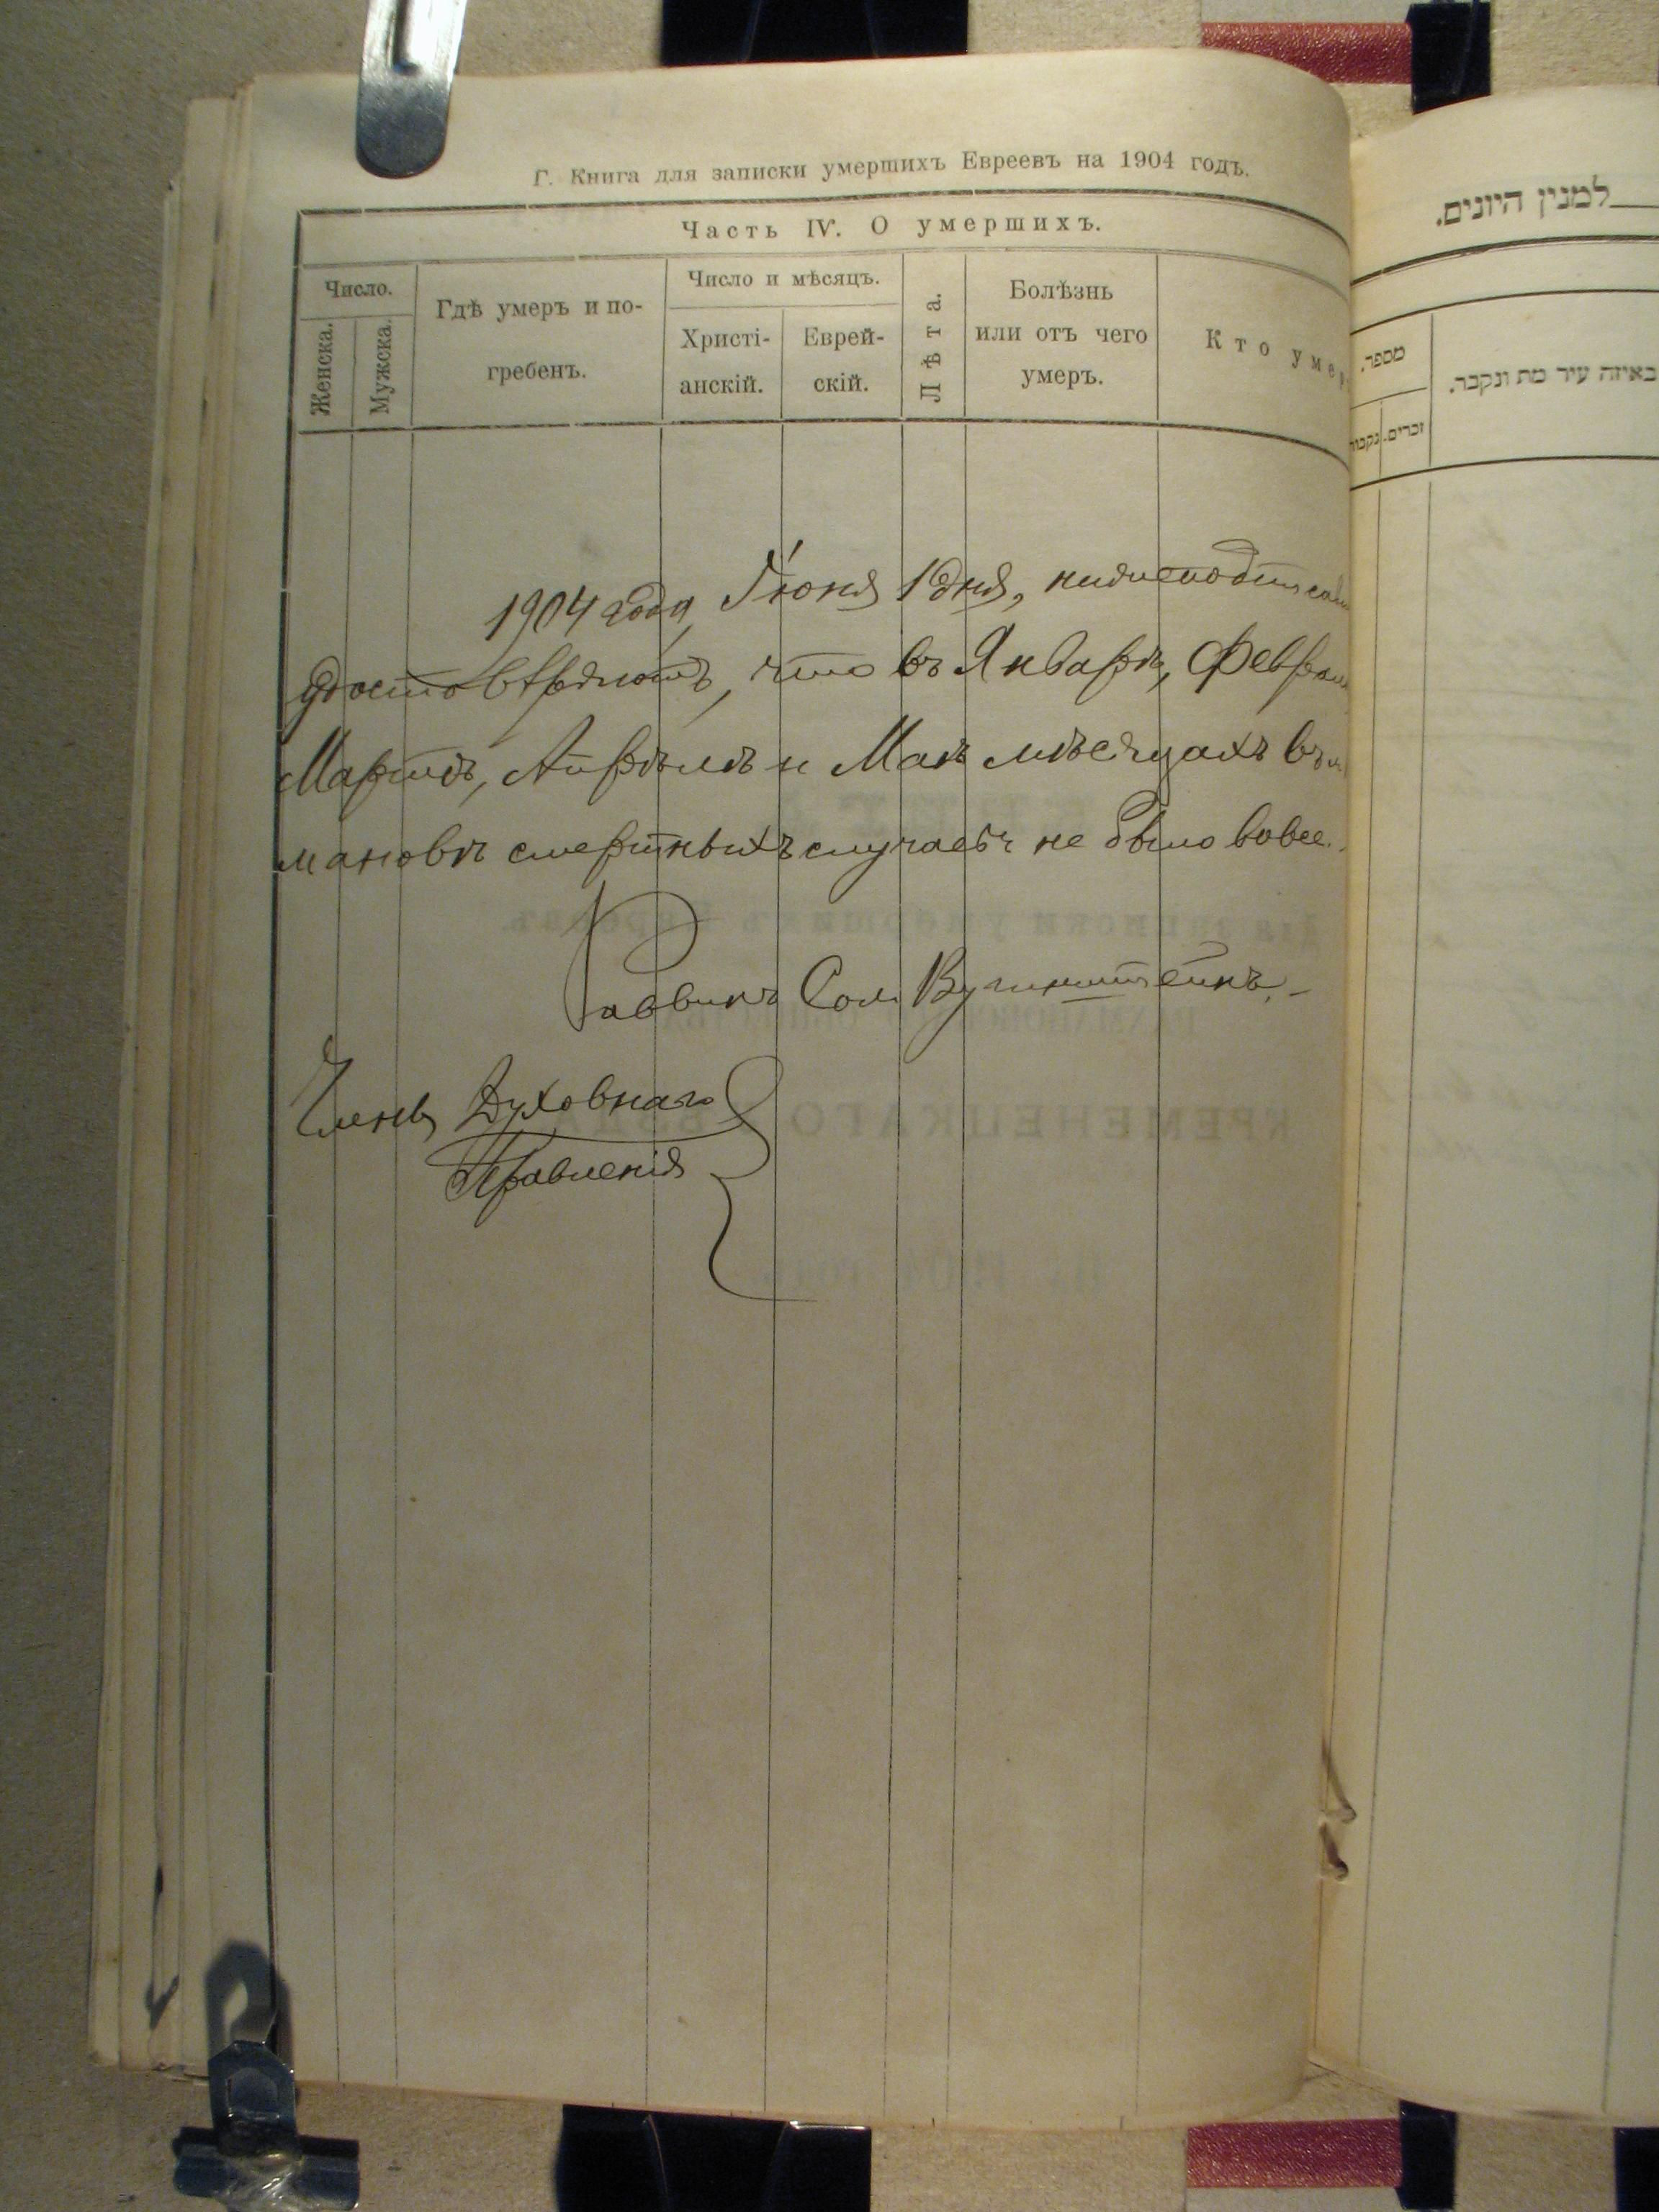 Г. Книга для записки умершихъ Евреевъ на 1904 годъ.
Часть IV. О умершихъ.
Число.
Женска.
Мужска.
Гдѣ умеръ и по-
гребенъ.
Число и мѣсяцъ.
Христі-
анскій.
Еврей-
скій.
Лѣта.
Болѣзнь
или отъ чего
умеръ.
Кто умер
1904 года, Іюня 1 дня,
удостовѣряютъ, что въ Январѣ, Феврал
Мартѣ, Апрѣлѣ и Маѣ мѣсяцахъ въ
мановѣ смертныхъ случаевъ не было вовсе.
Раввинъ Сол.
Члены Духовнаго
Правленія
למנין היונים.
מספר.
זכרים.
נקבות
באיזה עיר מת ונקבר.